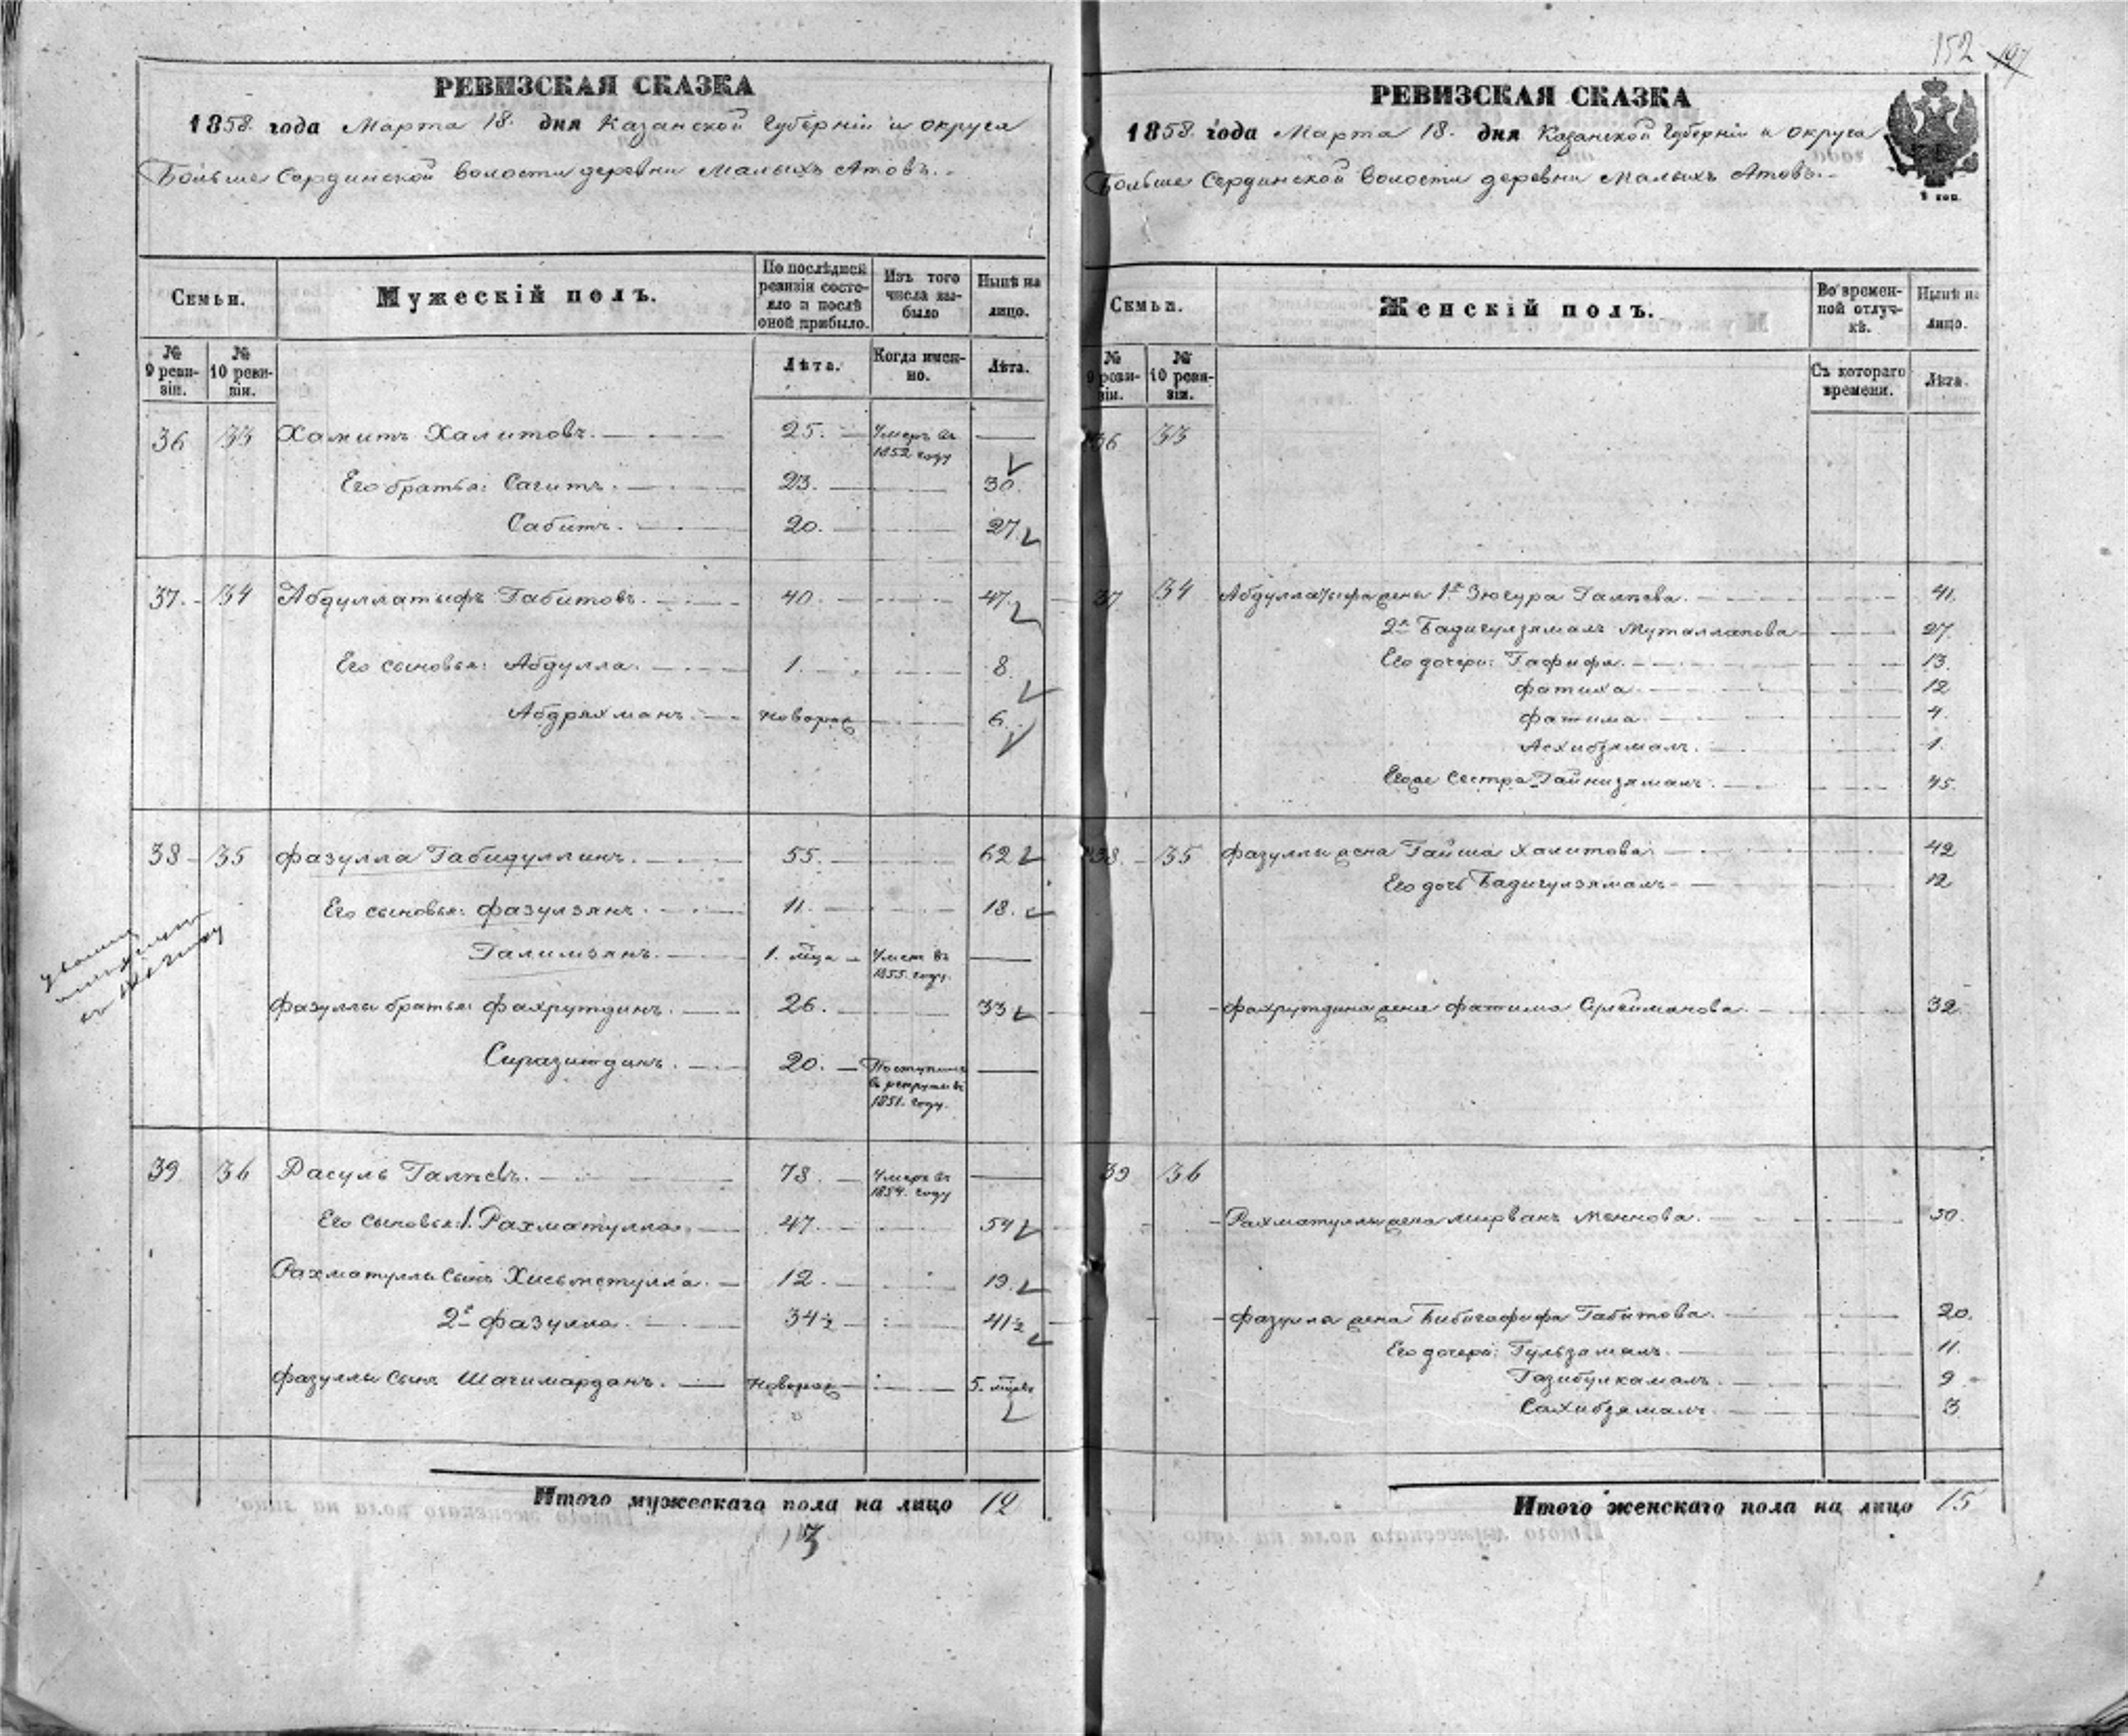 РЕВИЗСКАЯ СКАЗКА
1858. года Марта 18. дня Казанской Губерніи и округа
Больше Сердинской волости деревни Малыхъ Атовъ.
Семьи.
Мужескій полъ.
По послѣдней ревизіи состояло и послѣ оной прибыло.
Изъ того числа выбыло
Нынѣ на лицо.
№ 9 ревизіи.
№ 10 ревизіи.
Лѣта.
Когда именно.
Лѣта.
36 33 Хамитъ Халитовъ. 25. Умеръ въ 1852 году
Его братья: Сагитъ. 23. 30.
Сабитъ. 20. 27
37. 34 Абдуллатыфъ Габитовъ. 40. 47.
Его сыновья: Абдулла. 1. 8.
Абдряхманъ. новорож 6.
38 35 Фазулла Габидуллинъ. 55. 62
Его сыновья: Фазулзянъ. 11. 18.
Галимзянъ. 1. мца Умеръ въ 1855. году.
Фазуллы братья: Фахрутдинъ. 26. 33
Сиразитдинъ. 20. Поступилъ въ рекруты въ 1851. году.
39 36 Расуль Галѣевъ. 78. Умеръ въ 1854. году
Его сыновья: 1. Рахматулла. 47. 54
Рахматуллы сынъ Хисьметулла. 12. 19.
2й Фазулла. 34½ 41½
Фазуллы сынъ Шагимарданъ. новорож 5. мцевъ
Итого мужескаго пола на лицо 12
13
152 197
РЕВИЗСКАЯ СКАЗКА
1858. года Марта 18. дня Казанской Губерніи и округа
Больше Сердинской волости деревни Малыхъ Атовъ.
Семьи.
Женскій полъ.
Во временной отлучкѣ.
Нынѣ на лицо.
№ 9 ревизіи.
№ 10 ревизіи.
Съ котораго времени.
Лѣта.
36 33
37 34 Абдуллатыфа жены 1я Зюгура Галѣева. 41.
2я Бадигулзямалъ Муталлапова 27.
Его дочери: Гафифя. 13.
Фатиха. 12
Фатима. 4.
Асхибзямалъ. 1.
Егоже сестра Гайнизямалъ. 45.
38. 35 Фазуллы жена Гайша Халитова. 42
Его дочь Бадигулзямалъ. 12
Фахрутдина жена Фатима Сулейманова. 32
39 36
Рахматуллы жена Мирвань Меннова. 50.
Фазулла жена Бибигафифа Габитова. 20.
Его дочери: Гульзямалъ. 11.
Газибулкамалъ. 9
Сахибзямалъ. 3
Итого женскаго пола на лицо 15